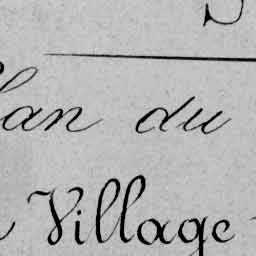 lan du
Village